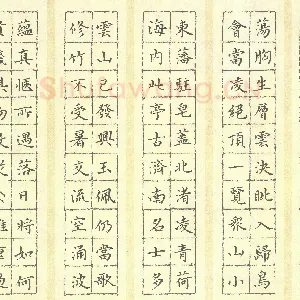 蕩胸生層雲決眦入歸鳥
會當凌絕頂一覽眾山小
東藩駐皂蓋北渚凌青荷
海內此亭古濟南名士多
雲山已發興玉佩仍當歌
修竹不受暑交流空涌波
蘊真愜所遇落日將如何